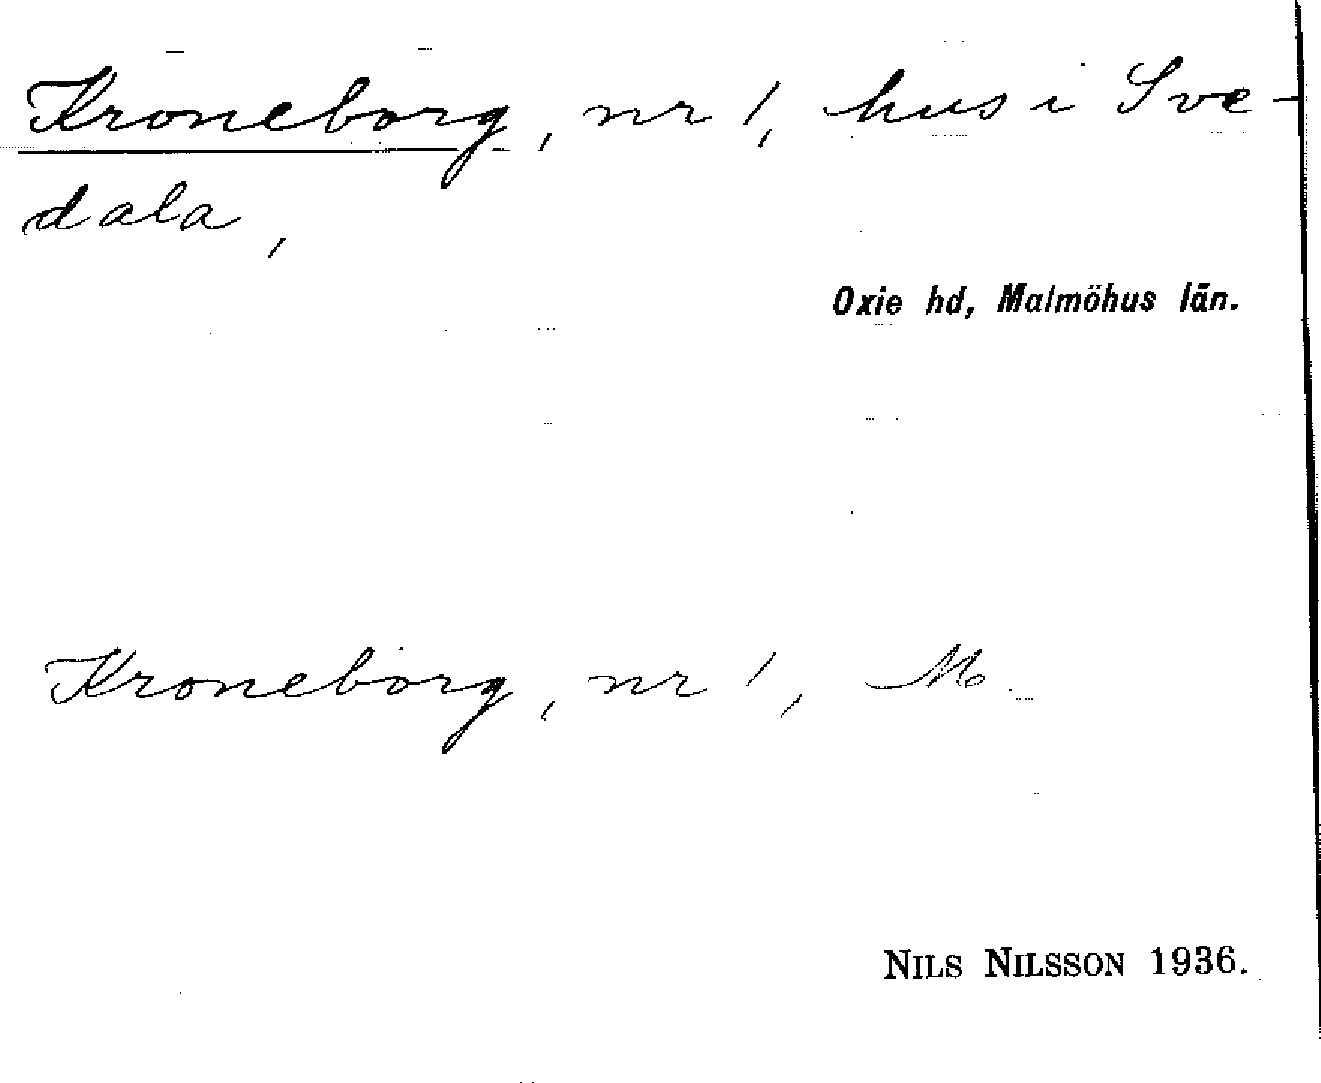 Kroneborg, nr 1, hus i Sve-
dala,
Oxie hd, Malmöhus län.
Kroneborg, nr 1, M.
NILS NILSSON 1936.